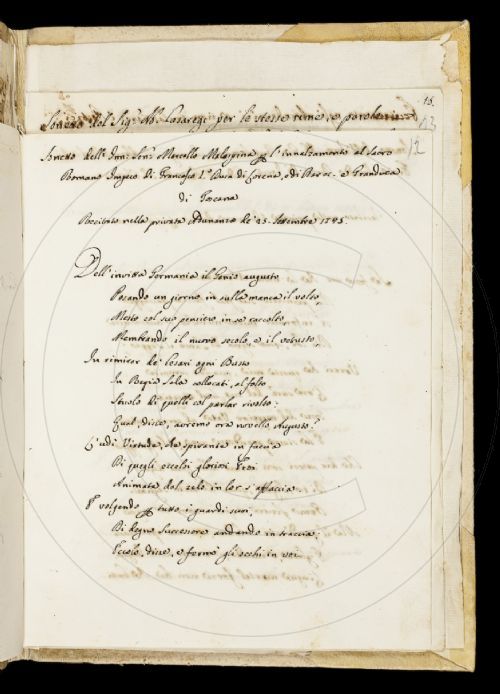 15.
Sonetto del Sig.r Ab. Casaregi per le stesse rime, e parole
13
12
Sonetto dell' Imm: Sen.e Marcello Malaspina per l'innalzamento al Sacro
Romano Impero di Francesco I.o Duca di Lorena, e di Bar &c. e Granduca
di Toscana
Recitato nella privata Adunanza de' 25. Settembre 1745.
Dell' invitta Germania il Genio augusto
Posando un giorno in sulla manca il volto,
Mesto col suo pensiero in se raccolto,
Membrando il nuovo secolo, e il vetusto,
In rimirar de' Cesari ogni Busto
In Regia Sala collocati, al folto
Stuolo di quelli col parlar rivolto:
Qual, disse, avremo ora novello Augusto?
L'udì Virtude, che spirante in faccia
Di quegli eccelsi gloriosi Eroi
Animata dal zelo in lor s'affaccia
E volgendo per tutto i guardi suoi,
Di degno Successore andando in traccia;
Eccolo, disse, e fermò gli occhi in voi.